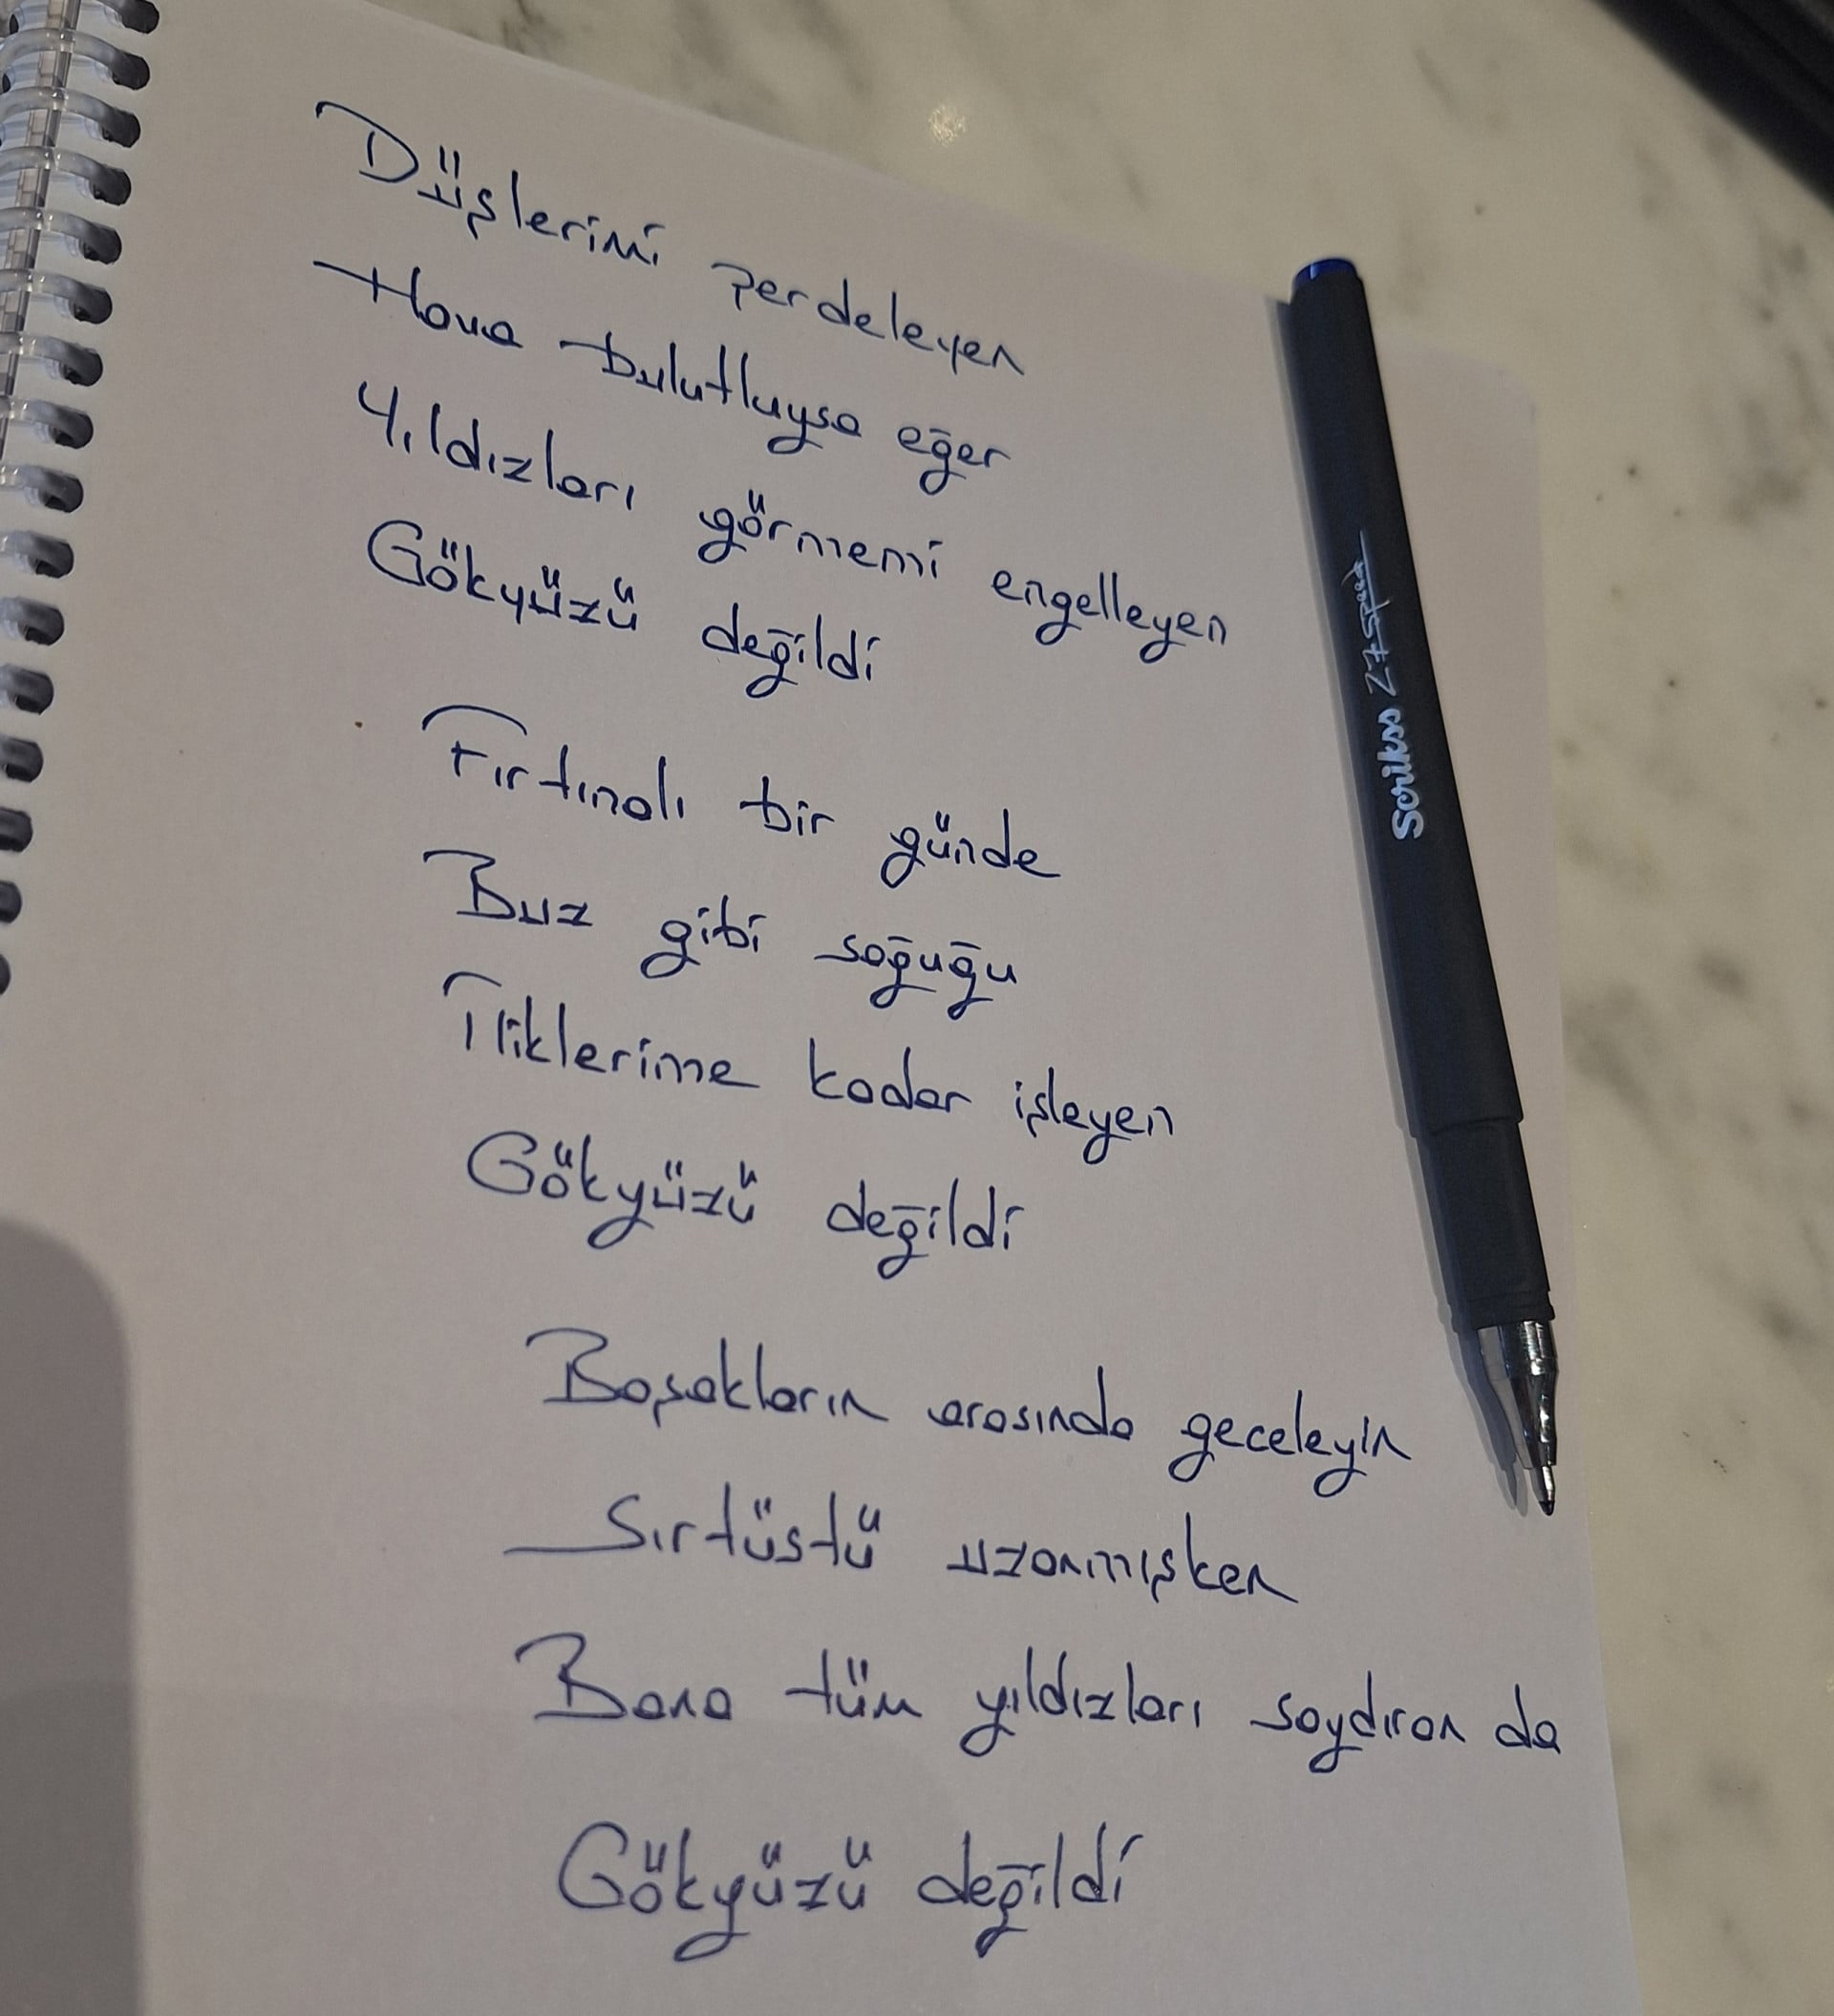 Düşlerimi perdeleyen
Hava bulutluysa eğer
Yıldızları görmemi engelleyen
Gökyüzü değildi
Fırtınalı bir günde
Buz gibi soğuğu
İliklerime kadar işleyen
Gökyüzü değildi
Başakların arasında geceleyin
Sırtüstü uzanmışken
Bana tüm yıldızları saydıran da
Gökyüzü değildi
Scrikss Z7 Speed